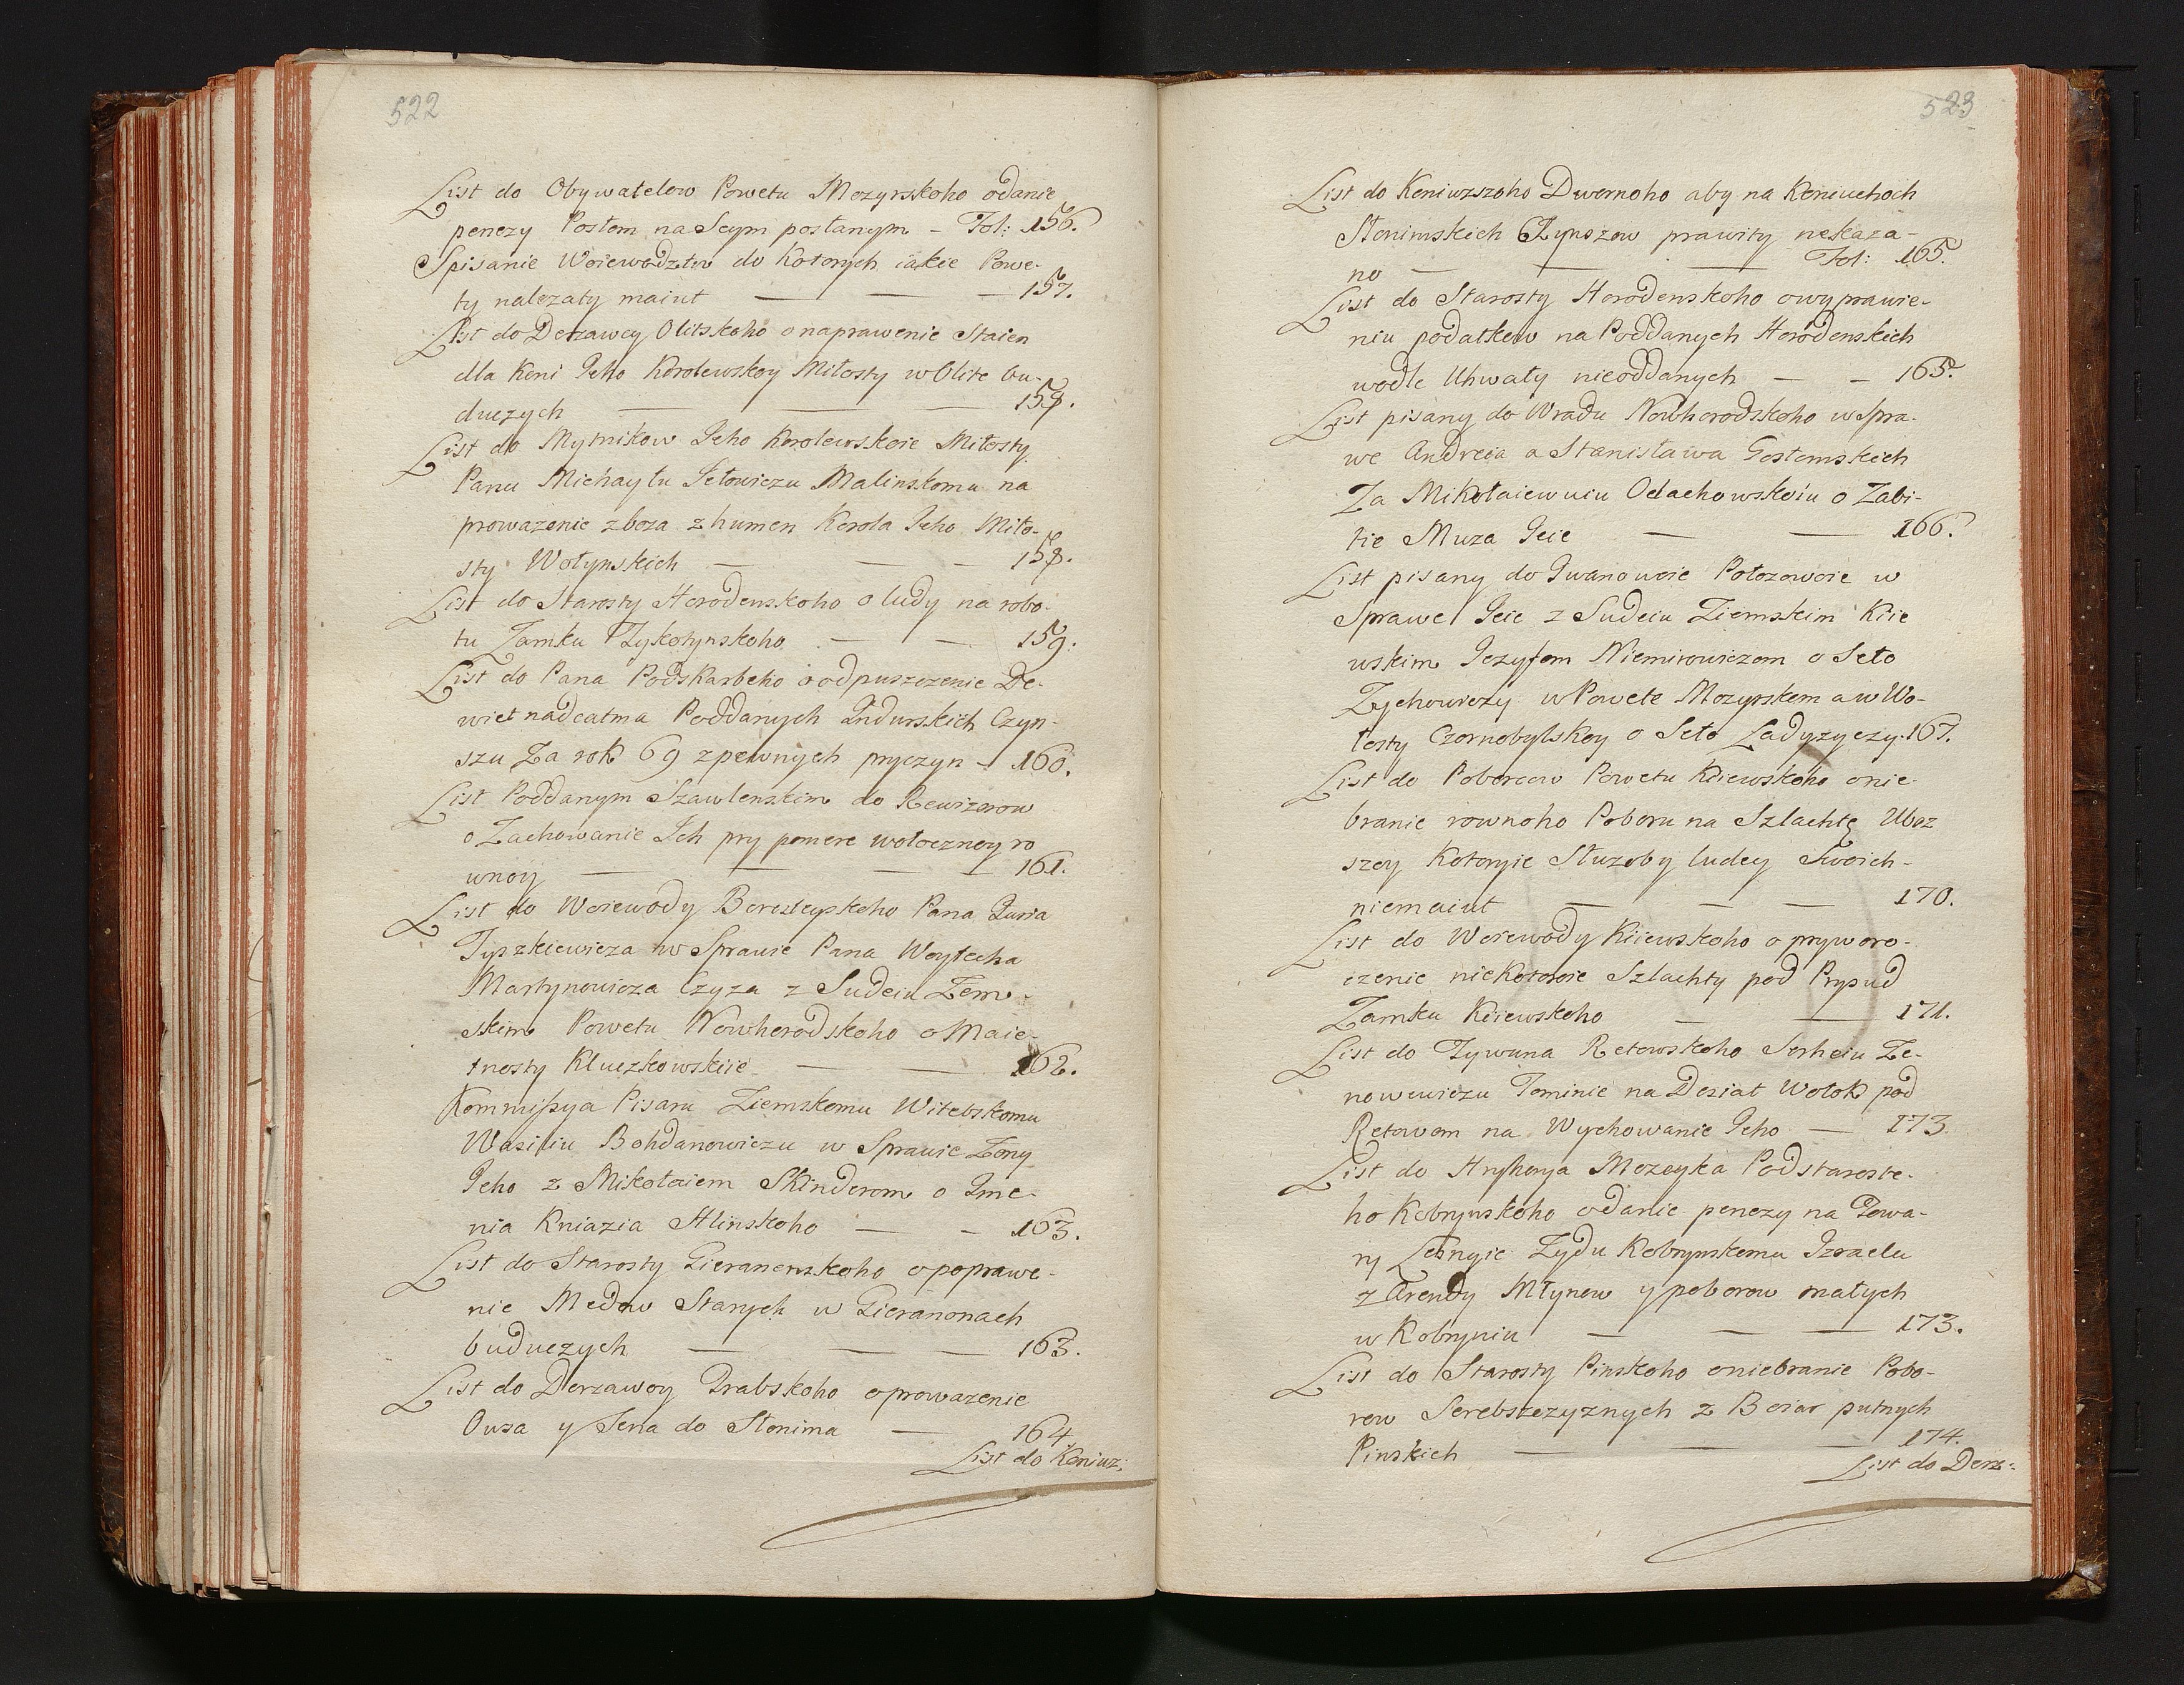 522
List do Obywatelow Powetu Mozyrskoho o danie
penezy Posłom na Seym posłanym – Fol: 156.
Spisanie Woiewodztw do Kotorych iakie Powe-
ty nalezały maiut — — — 157.
List do Derzawcy Olitskoho o naprawenie Staien
dla Koni Jeho Korolewskoy Miłosty w Olite bu-
duczych — — — 158.
List do Mytnikow Jeho Korolewskoie Miłosty
Panu Michayłu Jełowiczu Malinskomu na
prowazenie zboza z humen Korola Jeho Miło-
sty Wołynskich — — — 158.
List do Starosty Horodenskoho o ludy na robo-
tu Zamku Tykotynskoho — — 159.
List do Pana Podskarbeho o odpuszczenie De-
wiet nadcatma Poddanych Indurskich Czyn-
szu Za rok 69 z pewnych pryczyn – 160.
List Poddanym Szawlenskim do Rewizorow
o Zachowanie Ich pry pomere wołocznoy ro
wnoy — — — — 161.
List do Woiewody Beresteyskoho Pana Juria
Tyszkiewicza w Sprawie Pana Woytecha
Martynowicza Czyza z Sudeiu Zem-
skim Powetu Nowhorodskoho o Maie-
tnosty Kluczkowskiie — — 162.
Kommissya Pisaru Ziemskomu Witebskomu
Wasiliu Bohdanowiczu w Sprawie Zony
Jeho z Mikołaiem Skinderom o Ime-
nia Kniazia Hlinskoho — – 163.
List do Starosty Gieranonskoho o poprawe-
nie Medow Starych w Gieranonach
buduczych — — — 163.
List do Derzawcy Grabskoho o prowazenie
Owsa y Sena do Słonima — 164.
List do Koniuz:
523
List do Koniuzszoho Dwornoho aby na Koniuchoch
Słonimskich Czynszow prawity nekaza-
no — — — Fol: 165.
List do Starosty Horodenskoho o wyprawie-
niu podatkow na Poddanych Horodenskich
wodle Uhwały nieoddanych — – 165.
List pisany do Wradu Nowhorodskoho w Spra-
we Andreia a Stanisława Gostomskich
Za Mikołaiewuiu Odachowskoiu o Zabi-
tie Muza Jeie — — 166.
List pisany do Iwanowoie Połozowoie w
Sprawe Jeie z Sudeiu Ziemskim Kiie
wskim Jezyfom Niemirowiczom o Seło
Zychowiczy w Powete Mozyrskom a w Wo-
losty Czornobylskoy o Seło Ladyzyczy. 167.
List do Poborcow Powetu Kiiewskoho o nie-
branie rownoho Poboru na Szlachtę Uboz
szoy Kotoryie Słuzoby ludey Swoich-
niemaiut — — — 170.
List do Woiewody Kiiewskoho o pryworo-
czenie niekotoroie Szlachty pod Prysud
Zamku Kiiewskoho — — 171.
List do Tywuna Retowskoho Serheiu Ze-
nowewiczu Tominie na Desiat Wołok pod
Retowom na Wychowanie Jeho — 173.
List do Hryhorya Mozeyka Podstaroste-
ho Kobrynskoho o danie penezy na Powa-
ry Lesnyie Zydu Kobrynskomu Izraelu
z Arendy Młynow y poborow małych
w Kobryniu — — — 173.
List do Starosty Pinskoho o niebranie Pobo-
row Serebszczyznych z Boiar putnych
Pinskich — — — 174.
List do Derz: